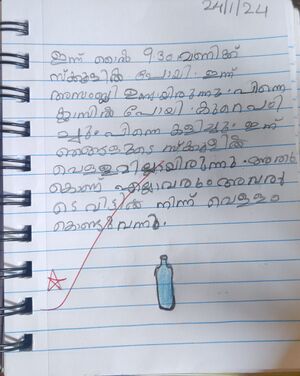 24/1/24
ഇന്ന് ഞാൻ 9:30 മണിക്ക്
സ്ക്കൂളിൽ പോയി. ഇന്ന്
അസംബ്ലി ഉണ്ടായിരുന്നു. പിന്നെ
ക്ലാസിൽ പോയി. കുറെ പഠി
ച്ചു. പിന്നെ കളിച്ചു. ഇന്ന്
ഞങ്ങളുടെ സ്ക്കൂളിൽ
വെള്ളമില്ലായിരുന്നു. അതു
കൊണ്ട് എല്ലാവരും അവരു
ടെ വീട്ടിൽ നിന്ന് വെള്ളം
കൊണ്ടുവന്നു.